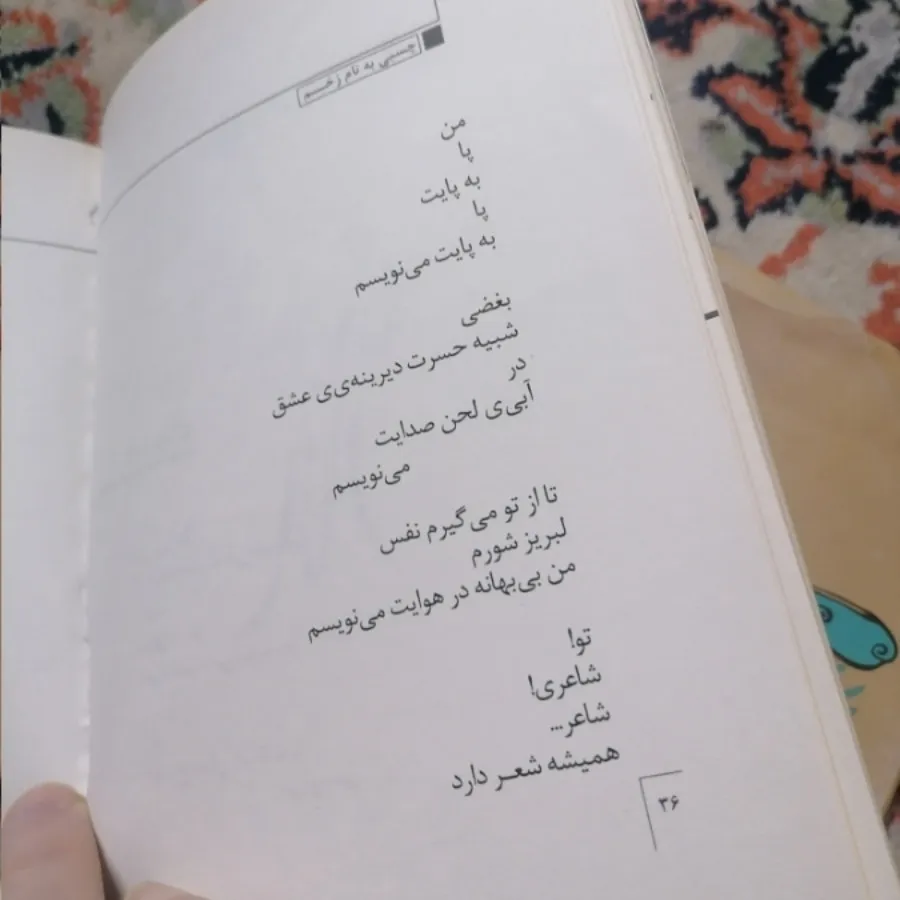 چسبی به نام زخم
من
پا
به پایت
پا
به پایت می‌نویسم
بغضی
شبیه حسرت دیرینه‌ی‌ی عشق
در
آبی‌ی لحن صدایت
می‌نویسم
تا از تو می‌گیرم نفس
لبریز شورم
من بی‌بهانه در هوایت می‌نویسم
تو!
شاعری!
شاعر...
همیشه شعر دارد
۳۶